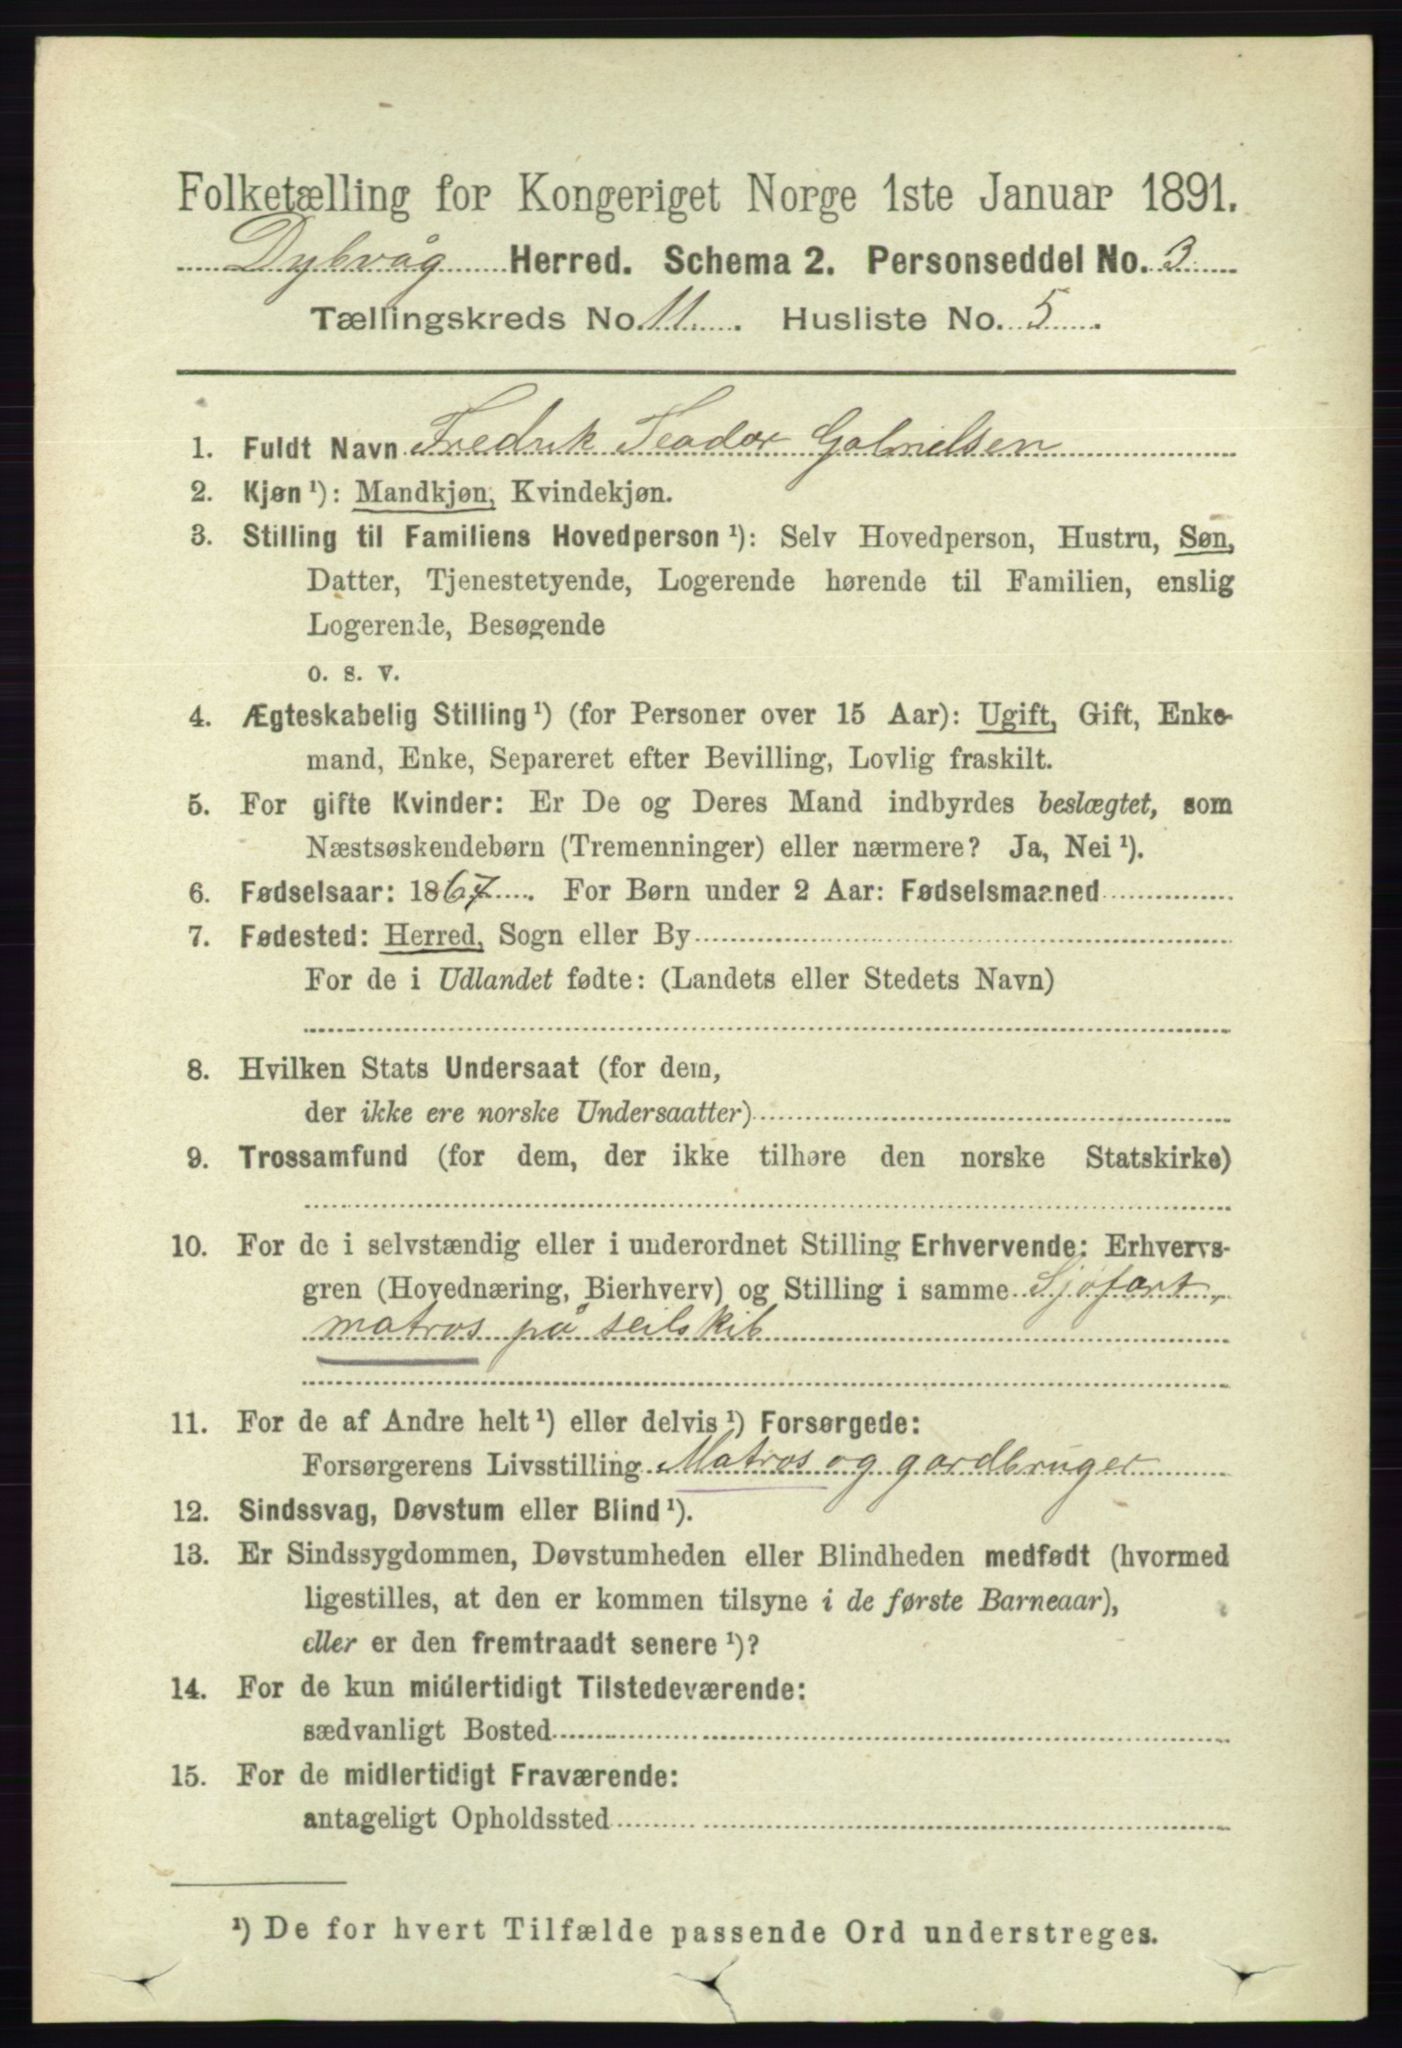 Folketælling for Kongeriget Norge 1ste Januar 1891.
Dybvåg Herred. Schema 2. Personseddel No. 3
Tællingskreds No. 11. Husliste No. 5.
1. Fuldt Navn Fredrik Teodor Gabrielsen
2. Kjøn ¹): Mandkjøn, Kvindekjøn.
3. Stilling til Familiens Hovedperson ¹): Selv Hovedperson, Hustru, Søn,
Datter, Tjenestetyende, Logerende hørende til Familien, enslig
Logerende, Besøgende
o. s. v.
4. Ægteskabelig Stilling ¹) (for Personer over 15 Aar): Ugift, Gift, Enke-
mand, Enke, Separeret efter Bevilling, Lovlig fraskilt.
5. For gifte Kvinder: Er De og Deres Mand indbyrdes beslægtet, som
Næstsøskendebørn (Tremenninger) eller nærmere? Ja, Nei ¹).
6. Fødselsaar: 1867. For Børn under 2 Aar: Fødselsmaaned
7. Fødested: Herred, Sogn eller By
For de i Udlandet fødte: (Landets eller Stedets Navn)
8. Hvilken Stats Undersaat (for dem,
der ikke ere norske Undersaatter)
9. Trossamfund (for dem, der ikke tilhøre den norske Statskirke)
10. For de i selvstændig eller i underordnet Stilling Erhvervende: Erhvervs-
gren (Hovednæring, Bierhverv) og Stilling i samme Sjøfart,
matros på seilskib
11. For de af Andre helt ¹) eller delvis ¹) Forsørgede:
Forsørgerens Livsstilling Matros og gardbruger
12. Sindssvag, Døvstum eller Blind ¹).
13. Er Sindssygdommen, Døvstumheden eller Blindheden medfødt (hvormed
ligestilles, at den er kommen tilsyne i de første Barneaar),
eller er den fremtraadt senere ¹)?
14. For de kun midlertidigt Tilstedeværende:
sædvanligt Bosted
15. For de midlertidigt Fraværende:
antageligt Opholdssted
¹) De for hvert Tilfælde passende Ord understreges.